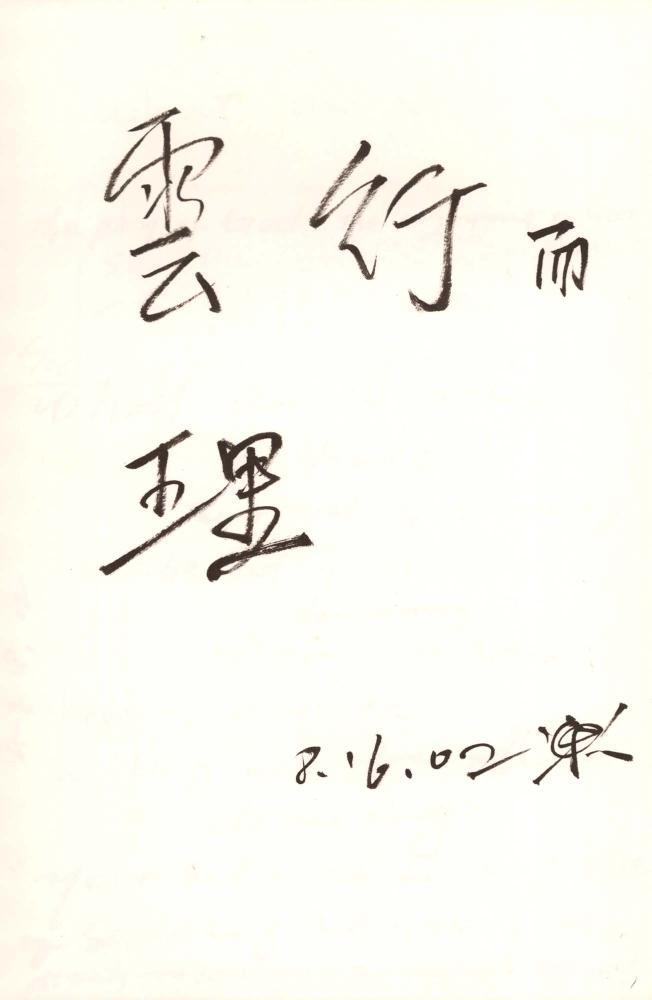 雲行而
理
8.16.02